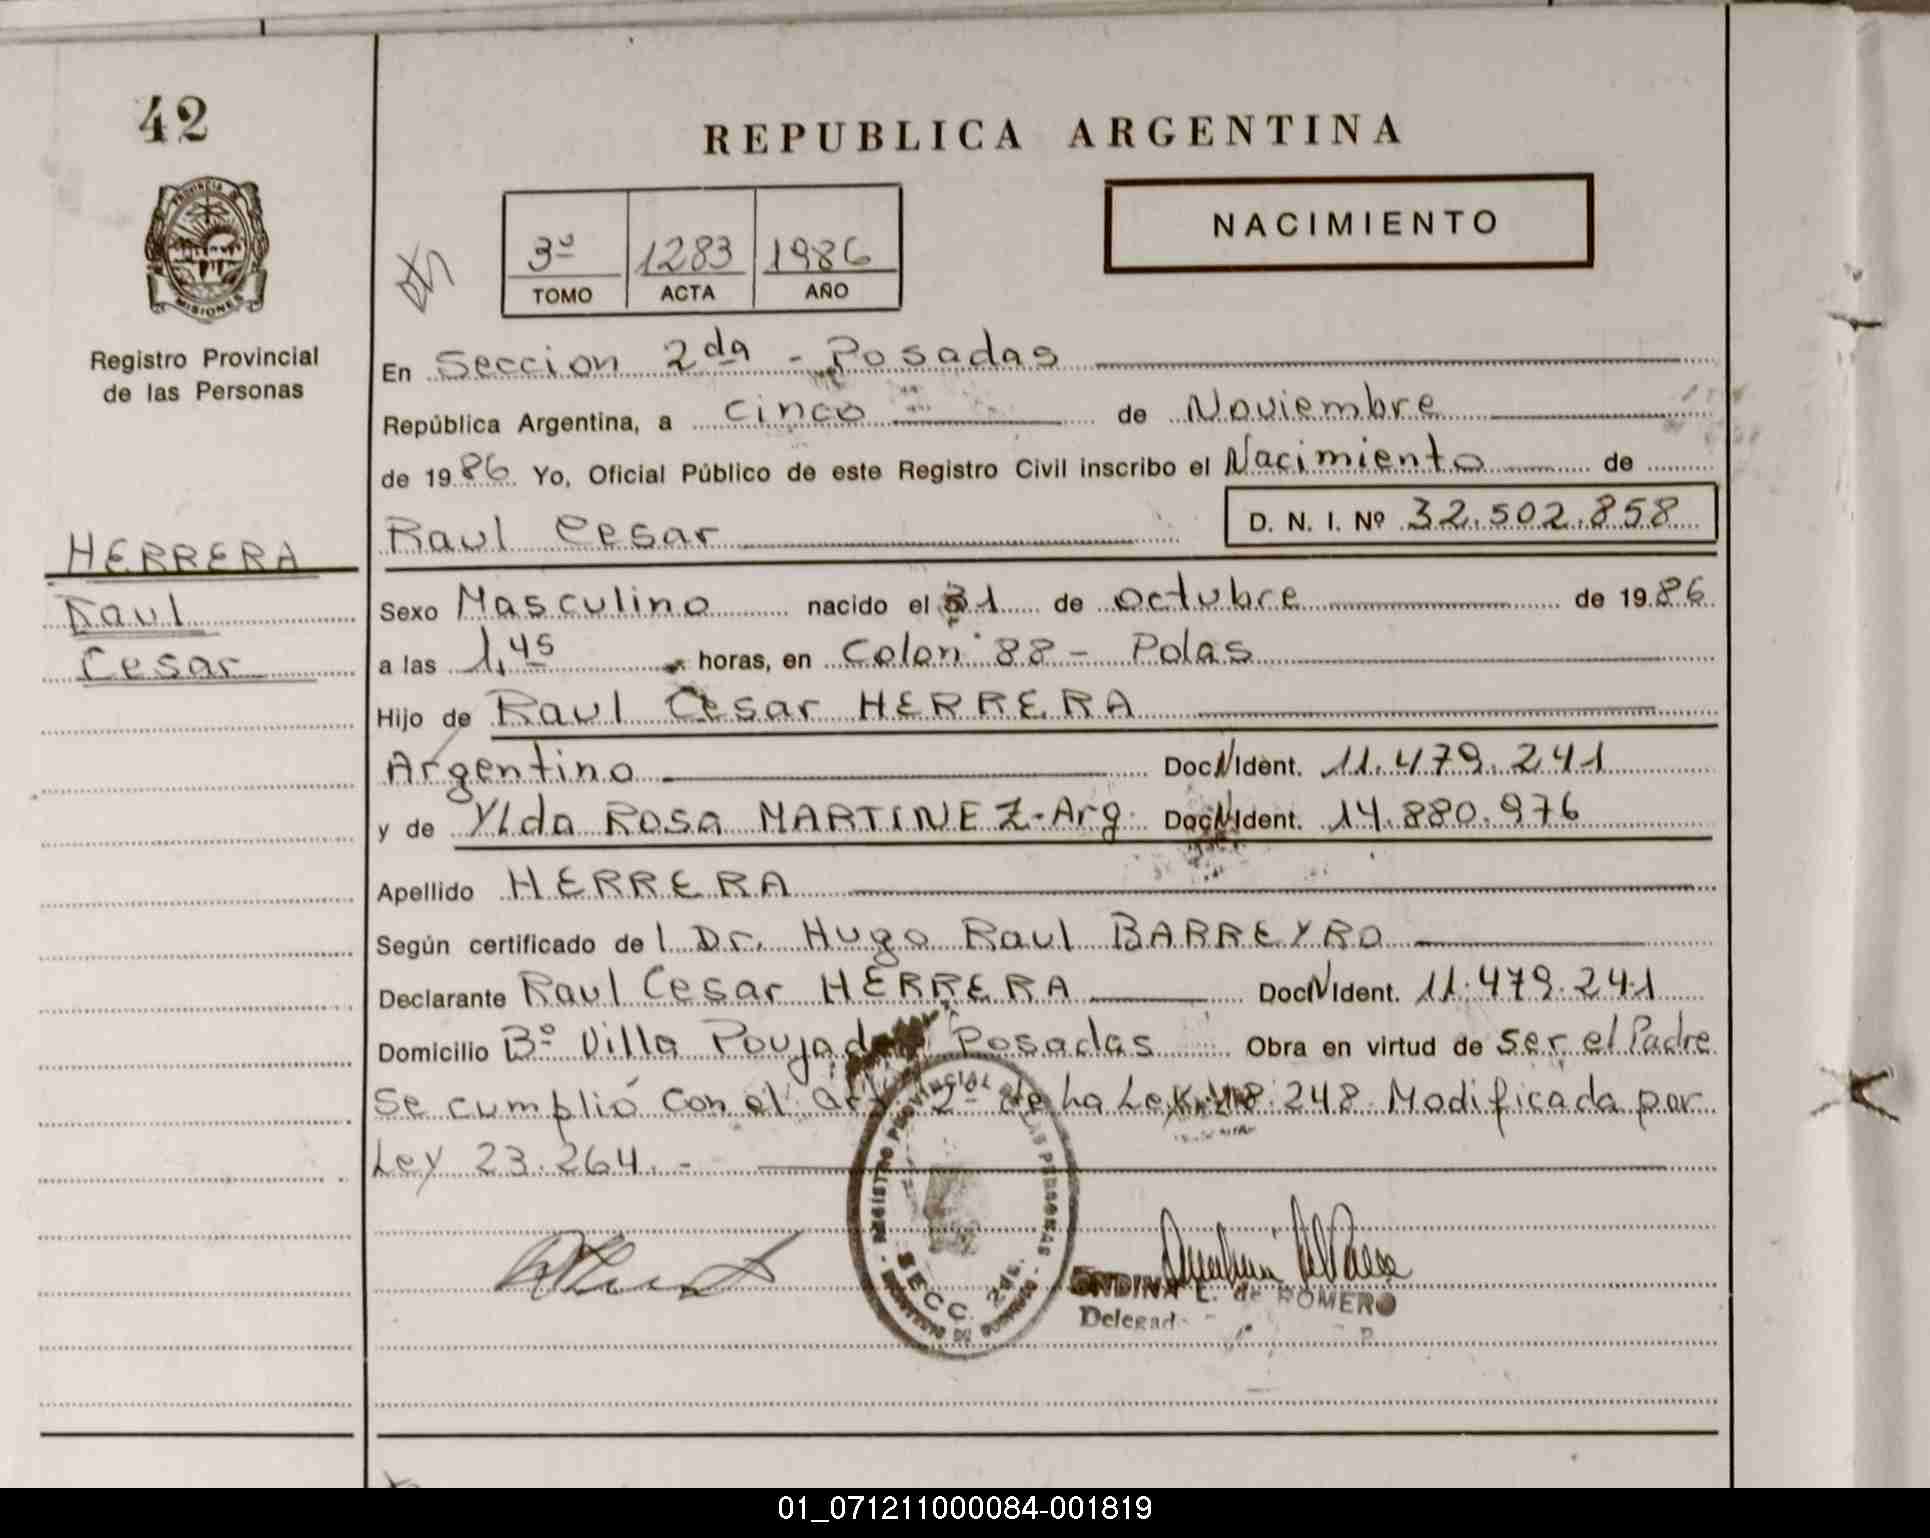 42
REPUBLICA ARGENTINA
PROVINCIA DE
MISIONES
NACIMIENTO
3º 1283 1986
TOMO ACTA AÑO
Registro Provincial
de las Personas
En Seccion 2da - Posadas
República Argentina, a cinco de Noviembre
de 1986 Yo, Oficial Público de este Registro Civil inscribo el Nacimiento de
Raul Cesar D. N. I. Nº 32.502.858
HERRERA
Raul
Cesar
Sexo Masculino nacido el 31 de octubre de 1986
a las 1,45 horas, en Colon 88 - Pdas
Hijo de Raul Cesar HERRERA
Argentino Doc N Ident. 11.479.241
y de Ylda Rosa MARTINEZ-Arg. Doc N Ident. 14.880.976
Apellido HERRERA
Según certificado del Dr. Hugo Raul BARREYRO
Declarante Raul Cesar HERRERA Doc N Ident. 11.479.241
Domicilio Bº Villa Poujade Posadas Obra en virtud de ser el Padre
Se cumplió con el art 2º de La Ley 18.248 Modificada por
Ley 23.264.-
REGISTRO PROVINCIAL DE LAS PERSONAS
SECC. 2da.
ONDINA L. de ROMERO
Delegad
01_071211000084-001819